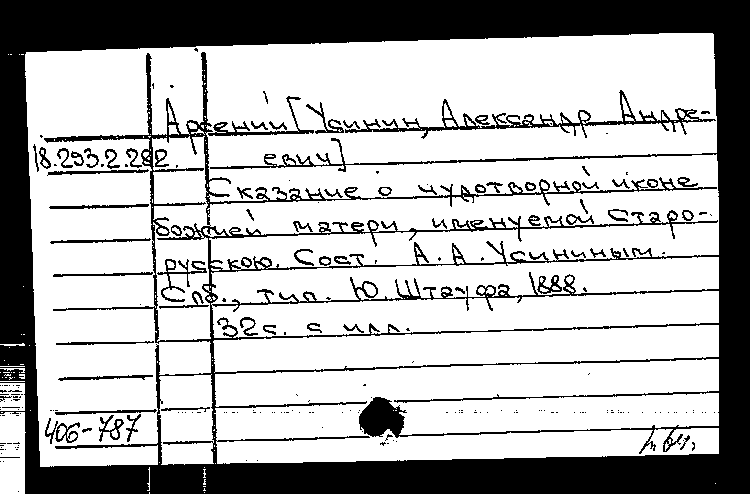 Арсений [Усинин, Александр Андре-
18.293.2.282. евич]
Сказание о чудотворной иконе
божией матери, именуемой Старо-
русскою. Сост. А.А. Усининым.
Спб., тип. Ю. Штауфа, 1888.
32 с. с илл.
406-787